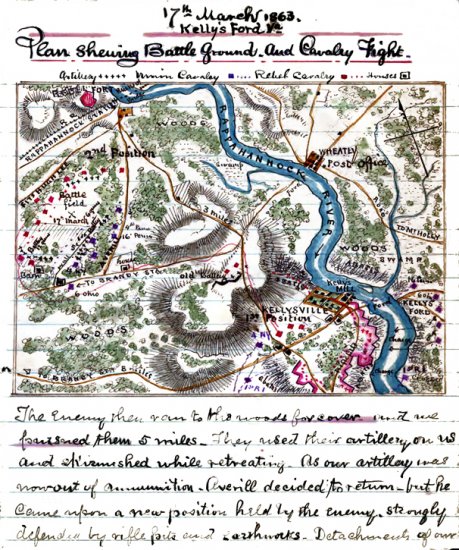 17th March 1863.
Kelly's Ford Va
Plan Shewing Battle Ground. And Cavalry Fight.
Artillery Union Cavalry Rebel Cavalry Houses
FORT
RAPPAHANNOCK STATION
WOODS
RAPPAHANNOCK RIVER
WHEATLY
Post Office
2nd Position
Swamp
Battle
field
17 March
16 Penn
2 miles
WOODS
SWAMP
TO MT HOLLY
House
Barn
TO BRANDY STN
6 Ohio
old
MILL
KELLYSVILLE
1st Position
KELLYS
FORD
Ford
WOODS
TO BRANDY Stn
1 R I
The Enemy then ran to the woods for cover and we
pursued them 5 miles. They used their artillery on us
and skirmished while retreating. As our artillery was
now out of ammunition. Averill decided to return. but he
came upon a new position held by the enemy. strongly
defended by rifle pits and earthworks. Detachments of our